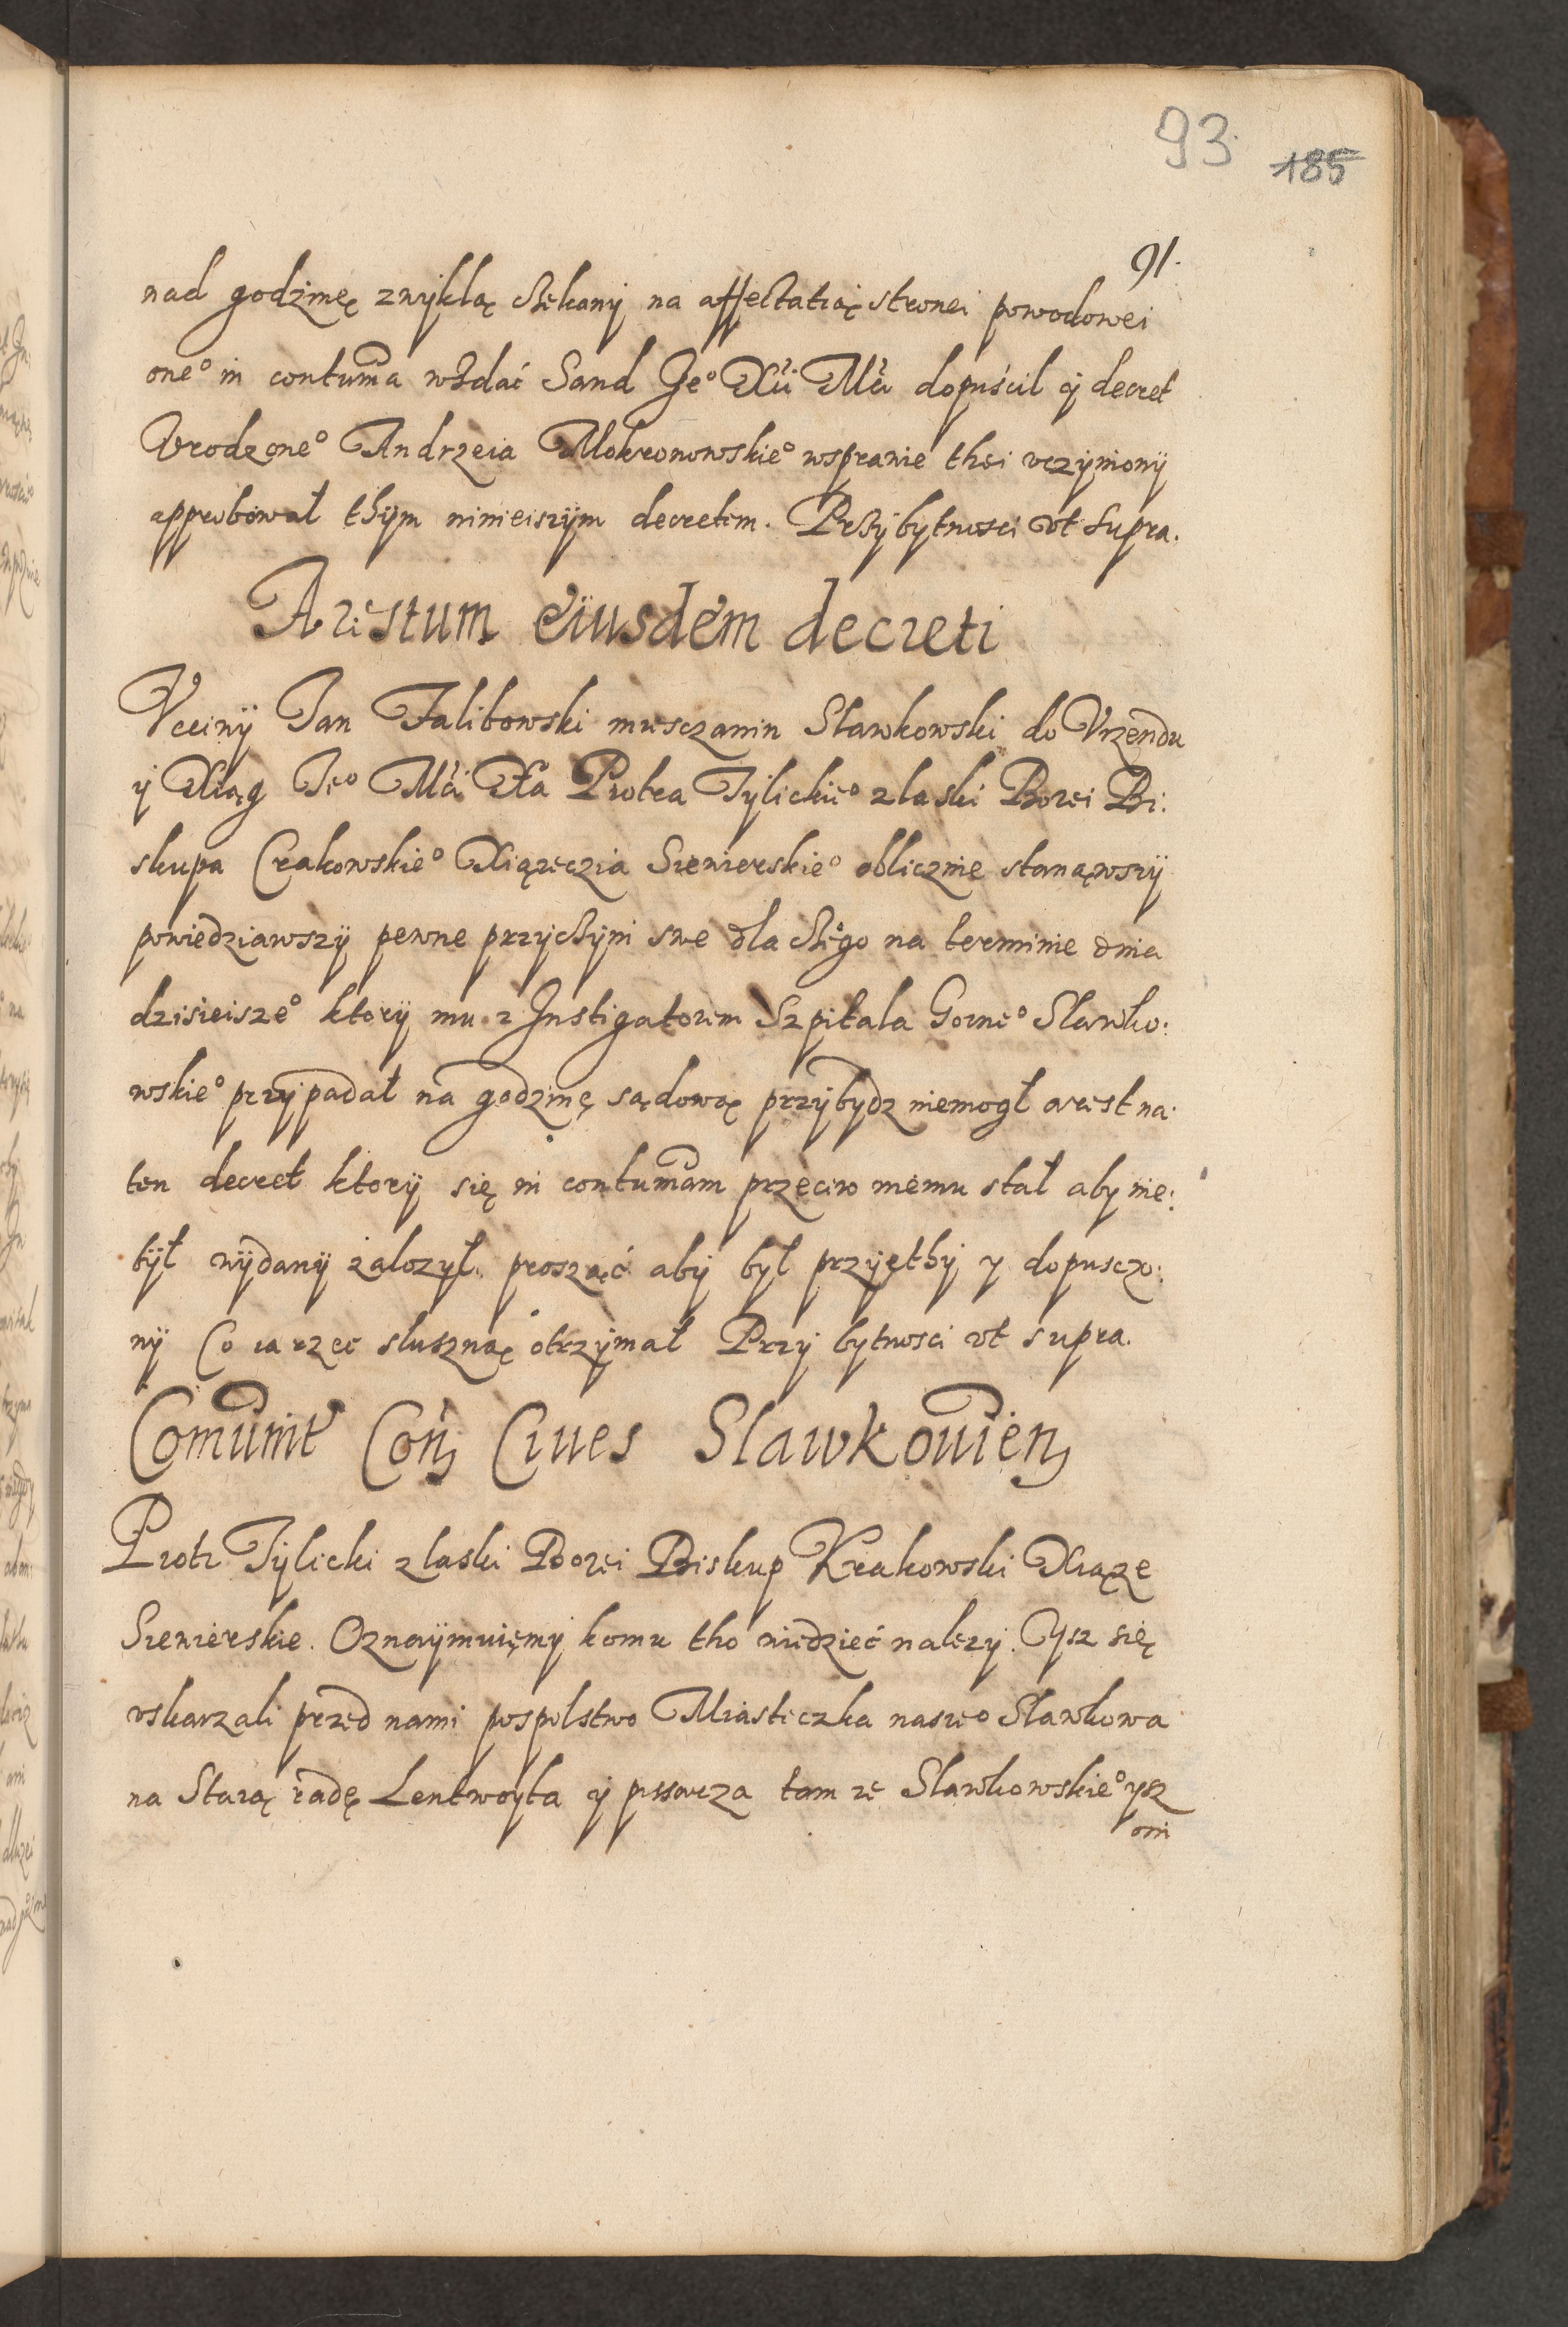 93.
185
91.
nad godzinę zwykłą czekany na affectatią stronei powodowei
one° in contuma wzdać Sand Je° Xci Mci dopuścił y decret
Vrodzone° Andrzeia Mokronowskie° wsprawie thei vczyniony
approbował thym ninieiszym decretem. Przybytnosci vt supra.
Arestum eiusdem decreti
Vcciwy Jan Falibowski miesczanin Slawkowski do Vrzendu
y Xiąg Je° Mci Xa Piotra Tylickie° z laski Bozei Bi:
skupa Crakowskie° Xiązęczia Siewierskie° oblicznie stanąwszy
powiedziawszy pewne przyczyni swe dla czego na terminie dnia
dzisieisze° ktory mu z Instigatorem Szpitala Gorne° Slawko:
wskie° przypadał na godzinę sądową przybydz niemogł arest na
ten decret ktory się in contumam przeciw niemu stał aby nie:
był wydany załozył. prosząc aby był przyęthy y dopusczo:
ny Co ia rzec słuszną otrzymał Przy bytnosci vt supra.
Comunit Cons Ciues Slawkouien
Piotr Tylicki z laski Bozei Biskup Krakowski Xiąze
Siewierskie. Oznaymuięmy komu tho wiedzieć nalezy. Ysz się
vskarzali przed nami pospolstwo Miasteczka nasze° Slawkowa
na Starą radę Lentwoyta y pissarza tam ze Slawkowskie° ysz
oni